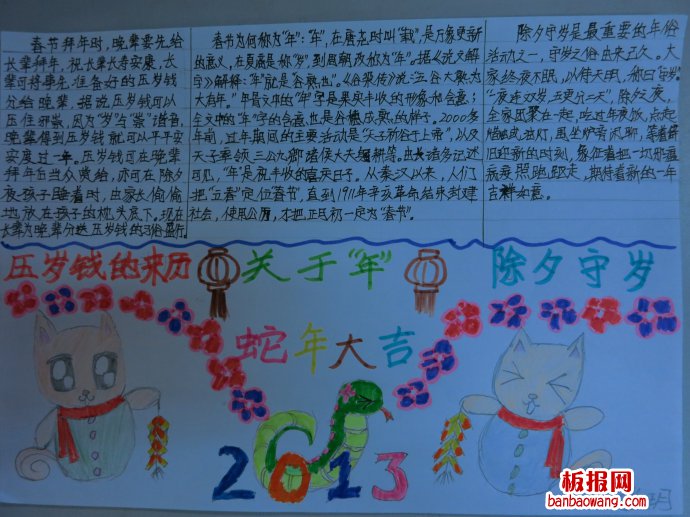 春节拜年时,晚辈要先给
长辈拜年,祝长辈长寿安康,长
辈可将事先准备好的压岁钱
分给晚辈,据说压岁钱可以
压住邪祟,因为"岁"与"祟"谐音,
晚辈得到压岁钱就可以平平安
安度过一年。压岁钱可在晚辈
拜年后当众赏给,亦可在除夕
夜孩子睡着时,由家长偷偷
地放在孩子的枕头底下。现在
长辈为晚辈分送压岁钱的习俗盛行。
春节为何称为"年":"年",在唐尧时叫"载",是万象更新
的意义,在夏商是称"岁",到周朝改称为"年"。据《说文解
字》解释:"年"就是谷熟也"。《谷梁传》说:"五谷大熟为
大有年。"甲骨文中的"年"字是果实丰收的形象和含意;
金文中的"年"字的含意也是谷穗成熟的样子。2000多
年前,过年期间的主要活动是"天子祈谷于上帝",以及
天子率领三公九卿诸侯大夫躬耕等。由长诸多记述
可见,"年"是祝丰收的喜庆日子。从秦汉以来,人们
把"立春"定位春节,直到1911年辛亥革命结束封建
社会,使用公历,才把正月初一定为"春节"。
除夕守岁是最重要的年俗
活动之一,守岁之俗由来已久。大
家终夜不眠,以待天明,称曰"守岁"
"一夜连双岁,五更分二天",除夕之夜,
全家团聚在一起,吃过年夜饭,点起
蜡烛或油灯,围坐炉旁闲聊,等着辞
旧迎新的时刻,象征着把一切邪瘟
病疫照跑驱走,期待着新的一年
吉祥如意。
压岁钱的来历
关于"年"
除夕守岁
蛇年大吉
2013
板报网
banbaowang.com
月